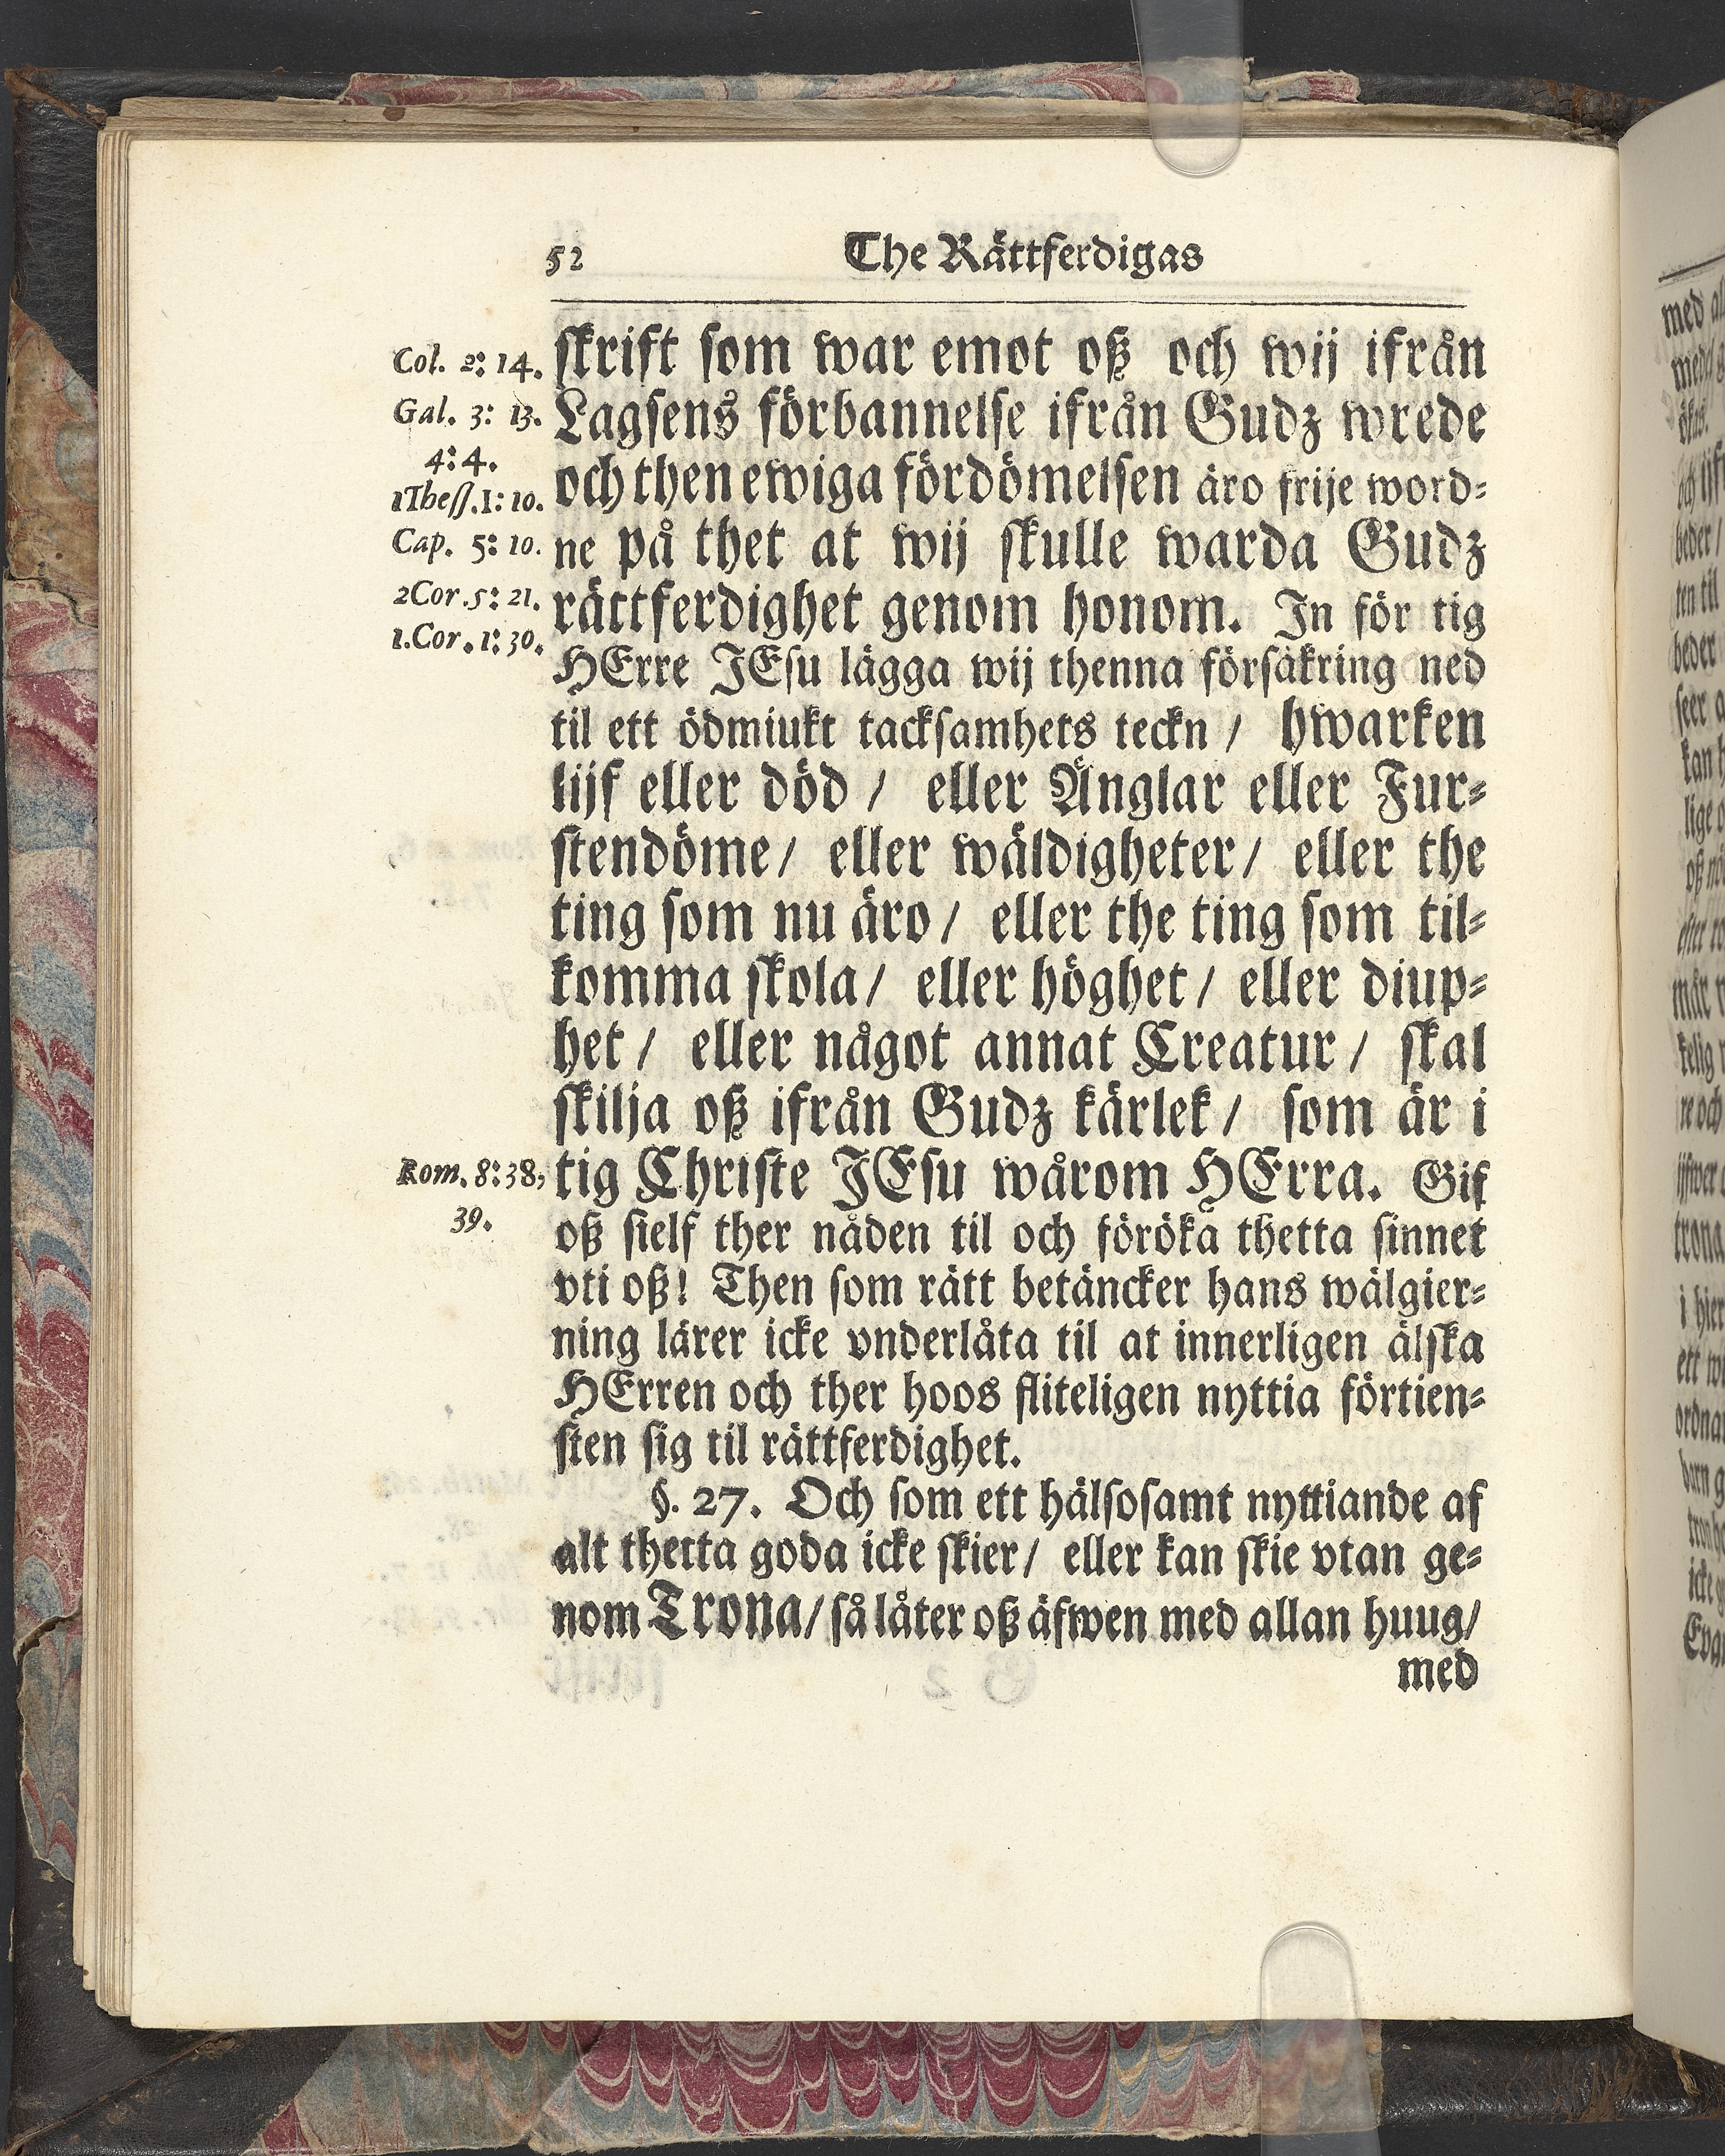 52 The Rättferdigas
Col. 2: 14.
Gal. 3: 13.
4: 4.
1Thess. 1: 10.
Cap. 5: 10.
2Cor. 5: 21.
1. Cor. 1: 30.
skrift som war emot oß och wij ifrån
Lagsens förbannelse ifrån Gudz wrede
och then ewiga fördömelsen äro frije word-
ne på thet at wij skulle warda Gudz
rättferdighet genom honom. In för tig
HErre JEsu lägga wij thenna försäkring ned
til ett ödmiukt tacksamhets teckn / hwarken
lijf eller död / eller Änglar eller Fur-
stendöme / eller wäldigheter / eller the
ting som nu äro / eller the ting som til-
komma skola / eller höghet / eller diup-
het / eller något annat Creatur / skal
skilja oß ifrån Gudz kärlek / som är i
Rom. 8: 38,
39.
tig Christe JEsu wårom HErra. Gif
oß sielf ther nåden til och föröka thetta sinnet
vti oß! Then som rätt betäncker hans wälgier-
ning lärer icke vnderlåta til at innerligen älska
HErren och ther hoos fliteligen nyttia förtien-
sten sig til rättferdighet.
§. 27. Och som ett hälsosamt nyttiande af
alt thetta goda icke skier / eller kan skie vtan ge-
nom Trona / så låter oß äfwen med allan huug /
med